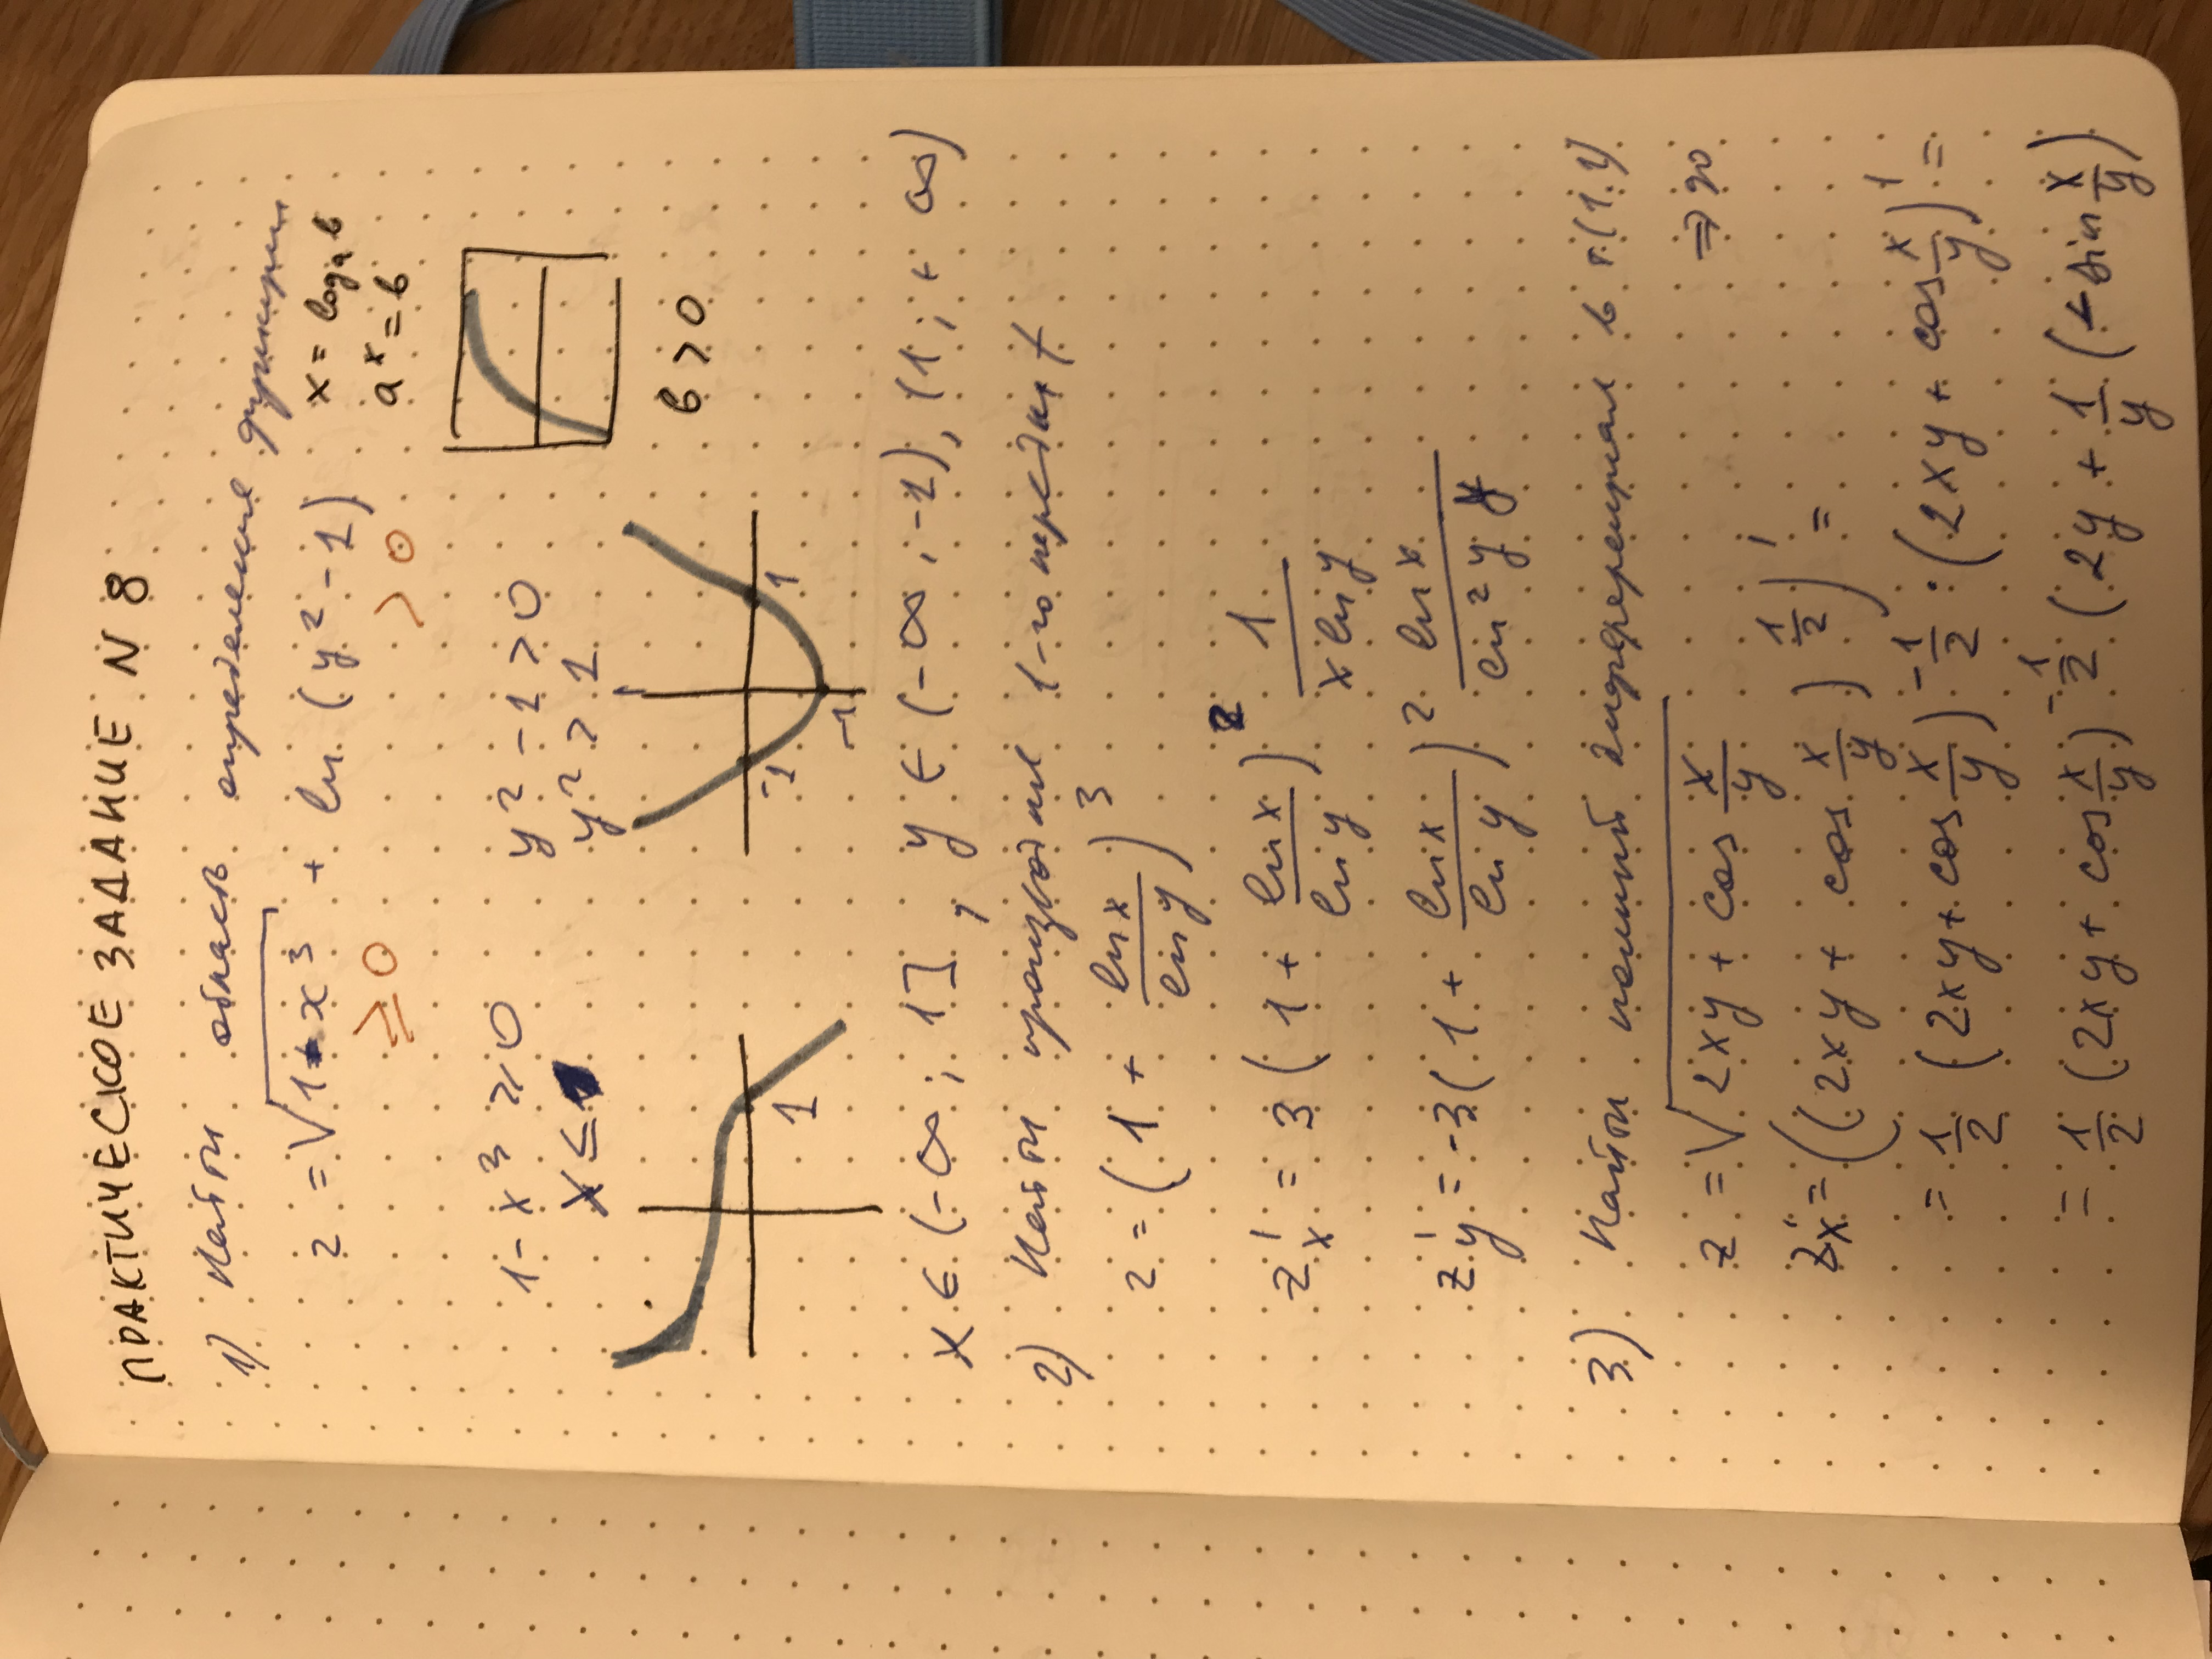 ПРАКТИЧЕСКОЕ ЗАДАНИЕ N 8
1) Найти область определения функции
z = √(1 - x³) + ln (y² - 1)
≥ 0 > 0
x = logₐ b
aˣ = b
1 - x³ ≥ 0 y² - 1 > 0
x ≤ 1 y² > 1
b > 0
1 -1 1
-1
x ∈ (-∞ ; 1] , y ∈ (-∞ ; -1), (1 ; + ∞)
2) Найти производные 1-го порядка
z = (1 + ln x / ln y)³
z'ₓ = 3 (1 + ln x / ln y)² 1 / (x ln y)
z'y = -3 (1 + ln x / ln y)² ln x / (ln² y y)
3) Найти полный дифференциал в т.(1.1)
z = √(2xy + cos x/y) ⇒
z'ₓ = ((2xy + cos x/y)^(1/2))' =
= 1/2 (2xy + cos x/y)^(-1/2) · (2xy + cos x/y)' =
= 1/2 (2xy + cos x/y)^(-1/2) (2y + 1/y (-sin x/y)